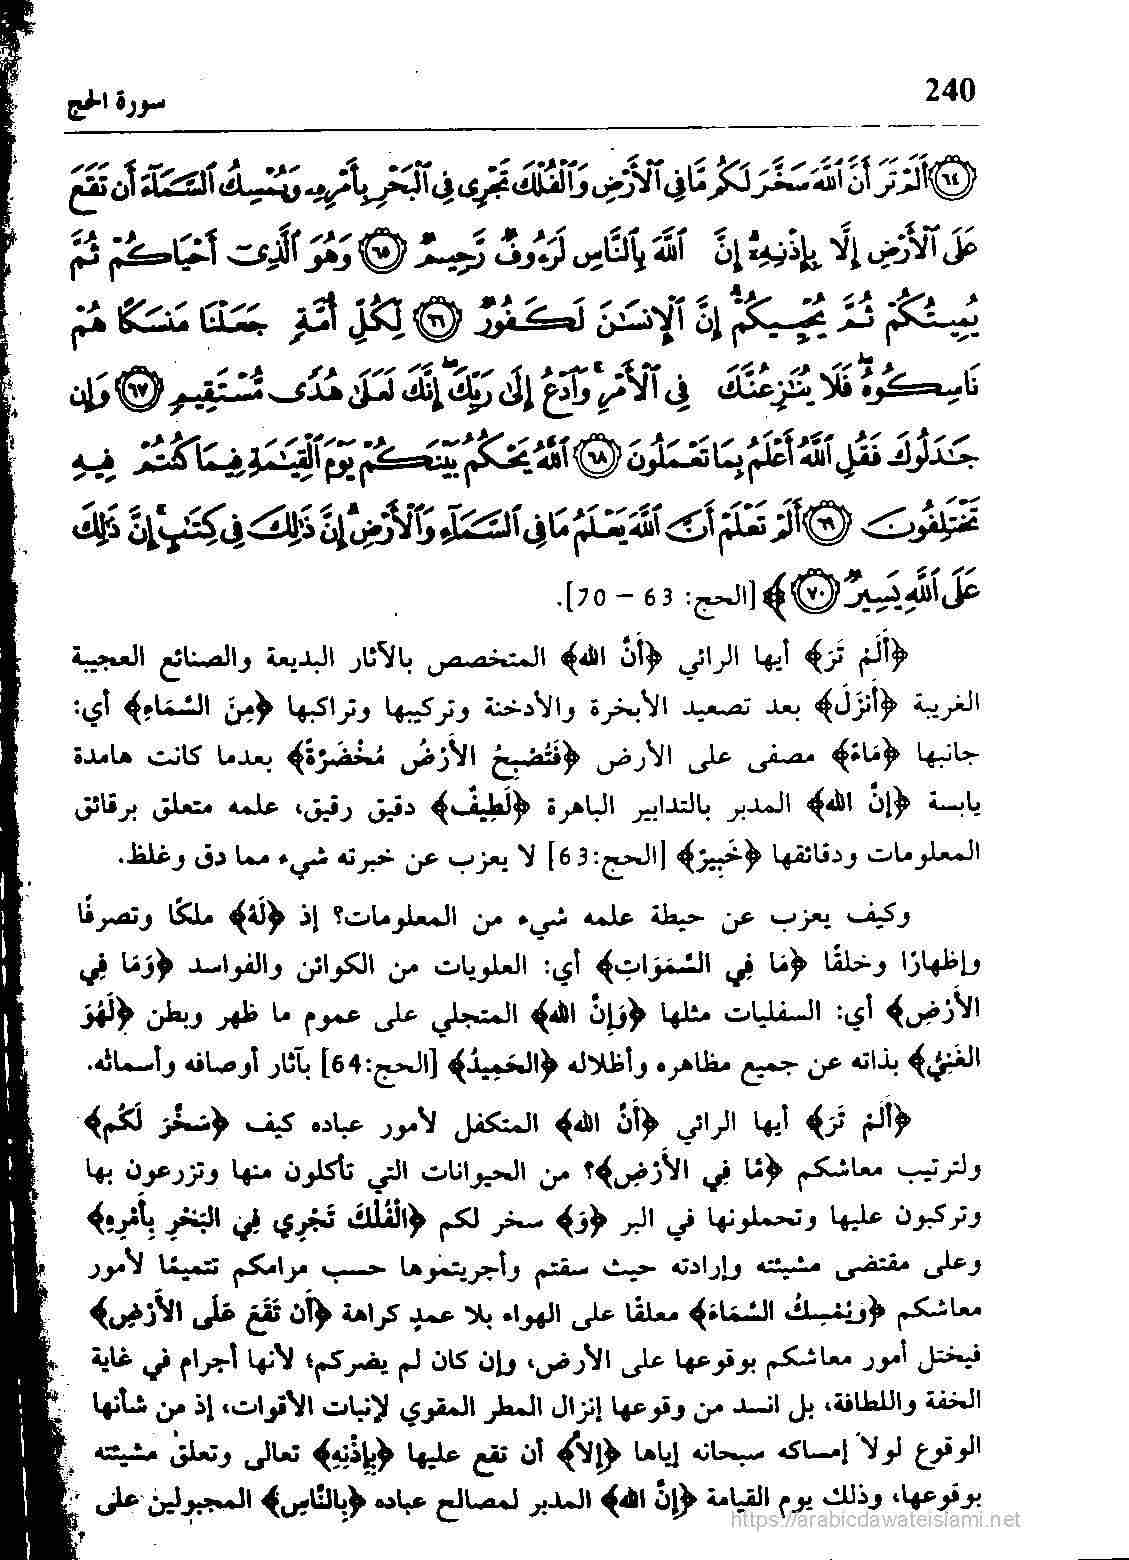 240
سورة الحج
﴿٦٤﴾ أَلَمْ تَرَ أَنَّ ٱللَّهَ سَخَّرَ لَكُم مَّا فِي ٱلْأَرْضِ وَٱلْفُلْكَ تَجْرِي فِي ٱلْبَحْرِ بِأَمْرِهِۦ وَيُمْسِكُ ٱلسَّمَآءَ أَن تَقَعَ
عَلَى ٱلْأَرْضِ إِلَّا بِإِذْنِهِۦٓۗ إِنَّ ٱللَّهَ بِٱلنَّاسِ لَرَءُوفٌ رَّحِيمٌ ﴿٦٥﴾ وَهُوَ ٱلَّذِيٓ أَحْيَاكُمْ ثُمَّ
يُمِيتُكُمْ ثُمَّ يُحْيِيكُمْۗ إِنَّ ٱلْإِنسَٰنَ لَكَفُورٌ ﴿٦٦﴾ لِّكُلِّ أُمَّةٍ جَعَلْنَا مَنسَكًا هُمْ
نَاسِكُوهُۖ فَلَا يُنَٰزِعُنَّكَ فِي ٱلْأَمْرِۚ وَٱدْعُ إِلَىٰ رَبِّكَۖ إِنَّكَ لَعَلَىٰ هُدًى مُّسْتَقِيمٍ ﴿٦٧﴾ وَإِن
جَٰدَلُوكَ فَقُلِ ٱللَّهُ أَعْلَمُ بِمَا تَعْمَلُونَ ﴿٦٨﴾ ٱللَّهُ يَحْكُمُ بَيْنَكُمْ يَوْمَ ٱلْقِيَٰمَةِ فِيمَا كُنتُمْ فِيهِ
تَخْتَلِفُونَ ﴿٦٩﴾ أَلَمْ تَعْلَمْ أَنَّ ٱللَّهَ يَعْلَمُ مَا فِي ٱلسَّمَآءِ وَٱلْأَرْضِۗ إِنَّ ذَٰلِكَ فِي كِتَٰبٍۚ إِنَّ ذَٰلِكَ
عَلَى ٱللَّهِ يَسِيرٌ ﴿٧٠﴾﴾ [الحج: 63 – 70].
﴿أَلَمْ تَرَ﴾ أيها الرائي ﴿أَنَّ الله﴾ المتخصص بالآثار البديعة والصنائع العجيبة
الغريبة ﴿أَنْزَلَ﴾ بعد تصعيد الأبخرة والأدخنة وتركيبها وتراكبها ﴿مِنَ السَّمَاءِ﴾ أي:
جانبها ﴿مَاءً﴾ مصفى على الأرض ﴿فَتُصْبِحُ الأَرْضُ مُخْضَرَّةً﴾ بعدما كانت هامدة
يابسة ﴿إِنَّ الله﴾ المدبر بالتدابير الباهرة ﴿لَطِيفٌ﴾ دقيق رقيق، علمه متعلق برقائق
المعلومات ودقائقها ﴿خَبِيرٌ﴾ [الحج:63] لا يعزب عن خبرته شيء مما دق وغلظ.
وكيف يعزب عن حيطة علمه شيء من المعلومات؟ إذ ﴿لَهُ﴾ ملكًا وتصرفًا
وإظهارًا وخلقًا ﴿مَا فِي السَّمَوَاتِ﴾ أي: العلويات من الكوائن والفواسد ﴿وَمَا فِي
الأَرْضِ﴾ أي: السفليات مثلها ﴿وَإِنَّ الله﴾ المتجلي على عموم ما ظهر وبطن ﴿لَهُوَ
الغَنِيُّ﴾ بذاته عن جميع مظاهره وأظلاله ﴿الحَمِيدُ﴾ [الحج:64] بآثار أوصافه وأسمائه.
﴿أَلَمْ تَرَ﴾ أيها الرائي ﴿أَنَّ الله﴾ المتكفل لأمور عباده كيف ﴿سَخَّرَ لَكُم﴾
ولترتيب معاشكم ﴿مَّا فِي الأَرْضِ﴾؟ من الحيوانات التي تأكلون منها وتزرعون بها
وتركبون عليها وتحملونها في البر ﴿وَ﴾ سخر لكم ﴿الْفُلْكَ تَجْرِي فِي البَحْرِ بِأَمْرِهِ﴾
وعلى مقتضى مشيئته وإرادته حيث سقتم وأجريتموها حسب مرامكم تتميمًا لأمور
معاشكم ﴿وَيُمْسِكُ السَّمَاءَ﴾ معلقًا على الهواء بلا عمدٍ كراهة ﴿أَن تَقَعَ عَلَى الأَرْضِ﴾
فيختل أمور معاشكم بوقوعها على الأرض، وإن كان لم يضركم؛ لأنها أجرام في غاية
الخفة واللطافة، بل انسد من وقوعها إنزال المطر المقوي لإنبات الأقوات، إذ من شأنها
الوقوع لولا إمساكه سبحانه إياها ﴿إِلاَّ﴾ أن تقع عليها ﴿بِإِذْنِهِ﴾ تعالى وتعلق مشيئته
بوقوعها، وذلك يوم القيامة ﴿إِنَّ الله﴾ المدبر لمصالح عباده ﴿بِالنَّاسِ﴾ المجبولين على
https://arabicdawateislami.net